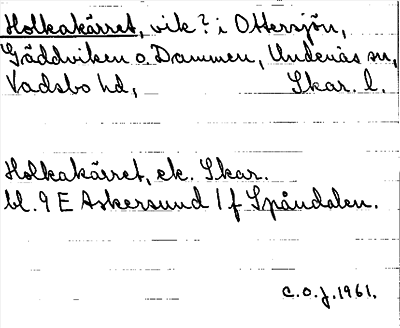 Holkakärret, vik? i Ottersjön,
Gäddviken o Dammen, Undenäs sn,
Vadsbo hd, Skar. l.
Holkakärret, ek. Skar.
bl. 9 E Askersund 1 f Spåndalen.
C.O.J. 1961.